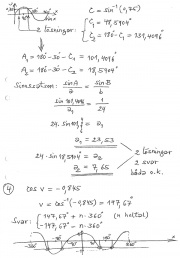 C = sin⁻¹(0,75)
2 lösningar: { C₁ = 48,5904°
C₂ = 180-C₁ = 131,4096°
A₁ = 180-30-C₁ = 101,4096°
A₂ = 180-30-C₂ = 18,5904°
Sinussatsen: sinA/a = sinB/b
sin 101,4096/a₁ = 1/24
24·sin 101,4° = a₁
a₁ = 23,53
24·sin 18,5904 = a₂
a₂ = 7,65
2 lösningar
2 svar
båda o.k.
4 cos v = -0,845
v = cos⁻¹(-0,845) = 147,67°
Svar: { 147,67° + n·360° (n heltal)
-147,67° + n·360°